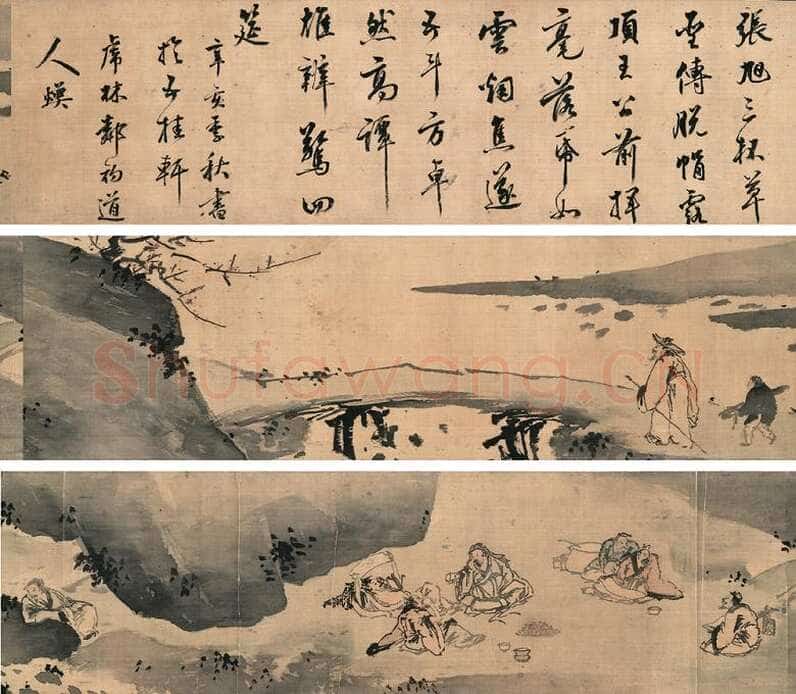 張旭三杯草
聖傳脫帽露
頂王公前揮
毫落帋如
雲烟焦遂
五斗方卓
然高譚
雄辨驚四
筵
辛亥季秋書
於五桂軒
虎林鄒道
人
Shufawang.CN